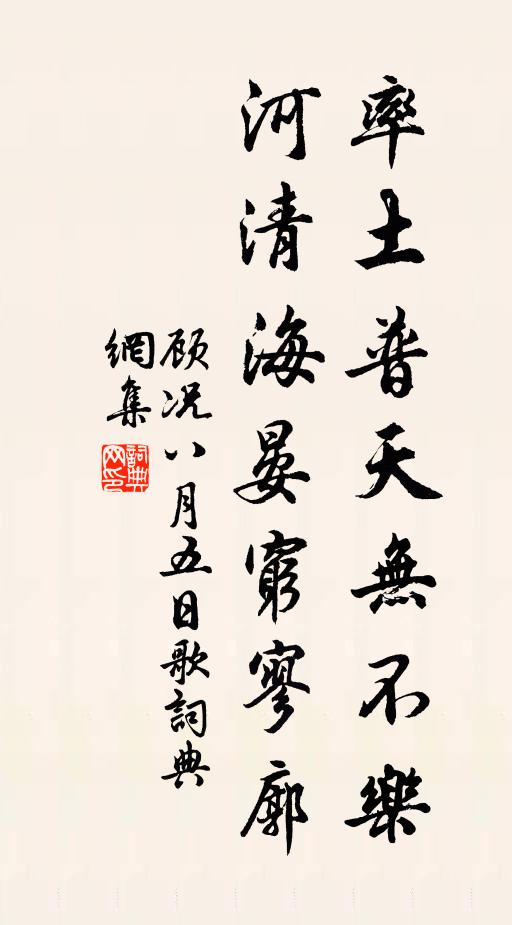 率土普天無不樂
河清海晏窮寥廓
顧况八月五日歌詞典
網集
詞典網印